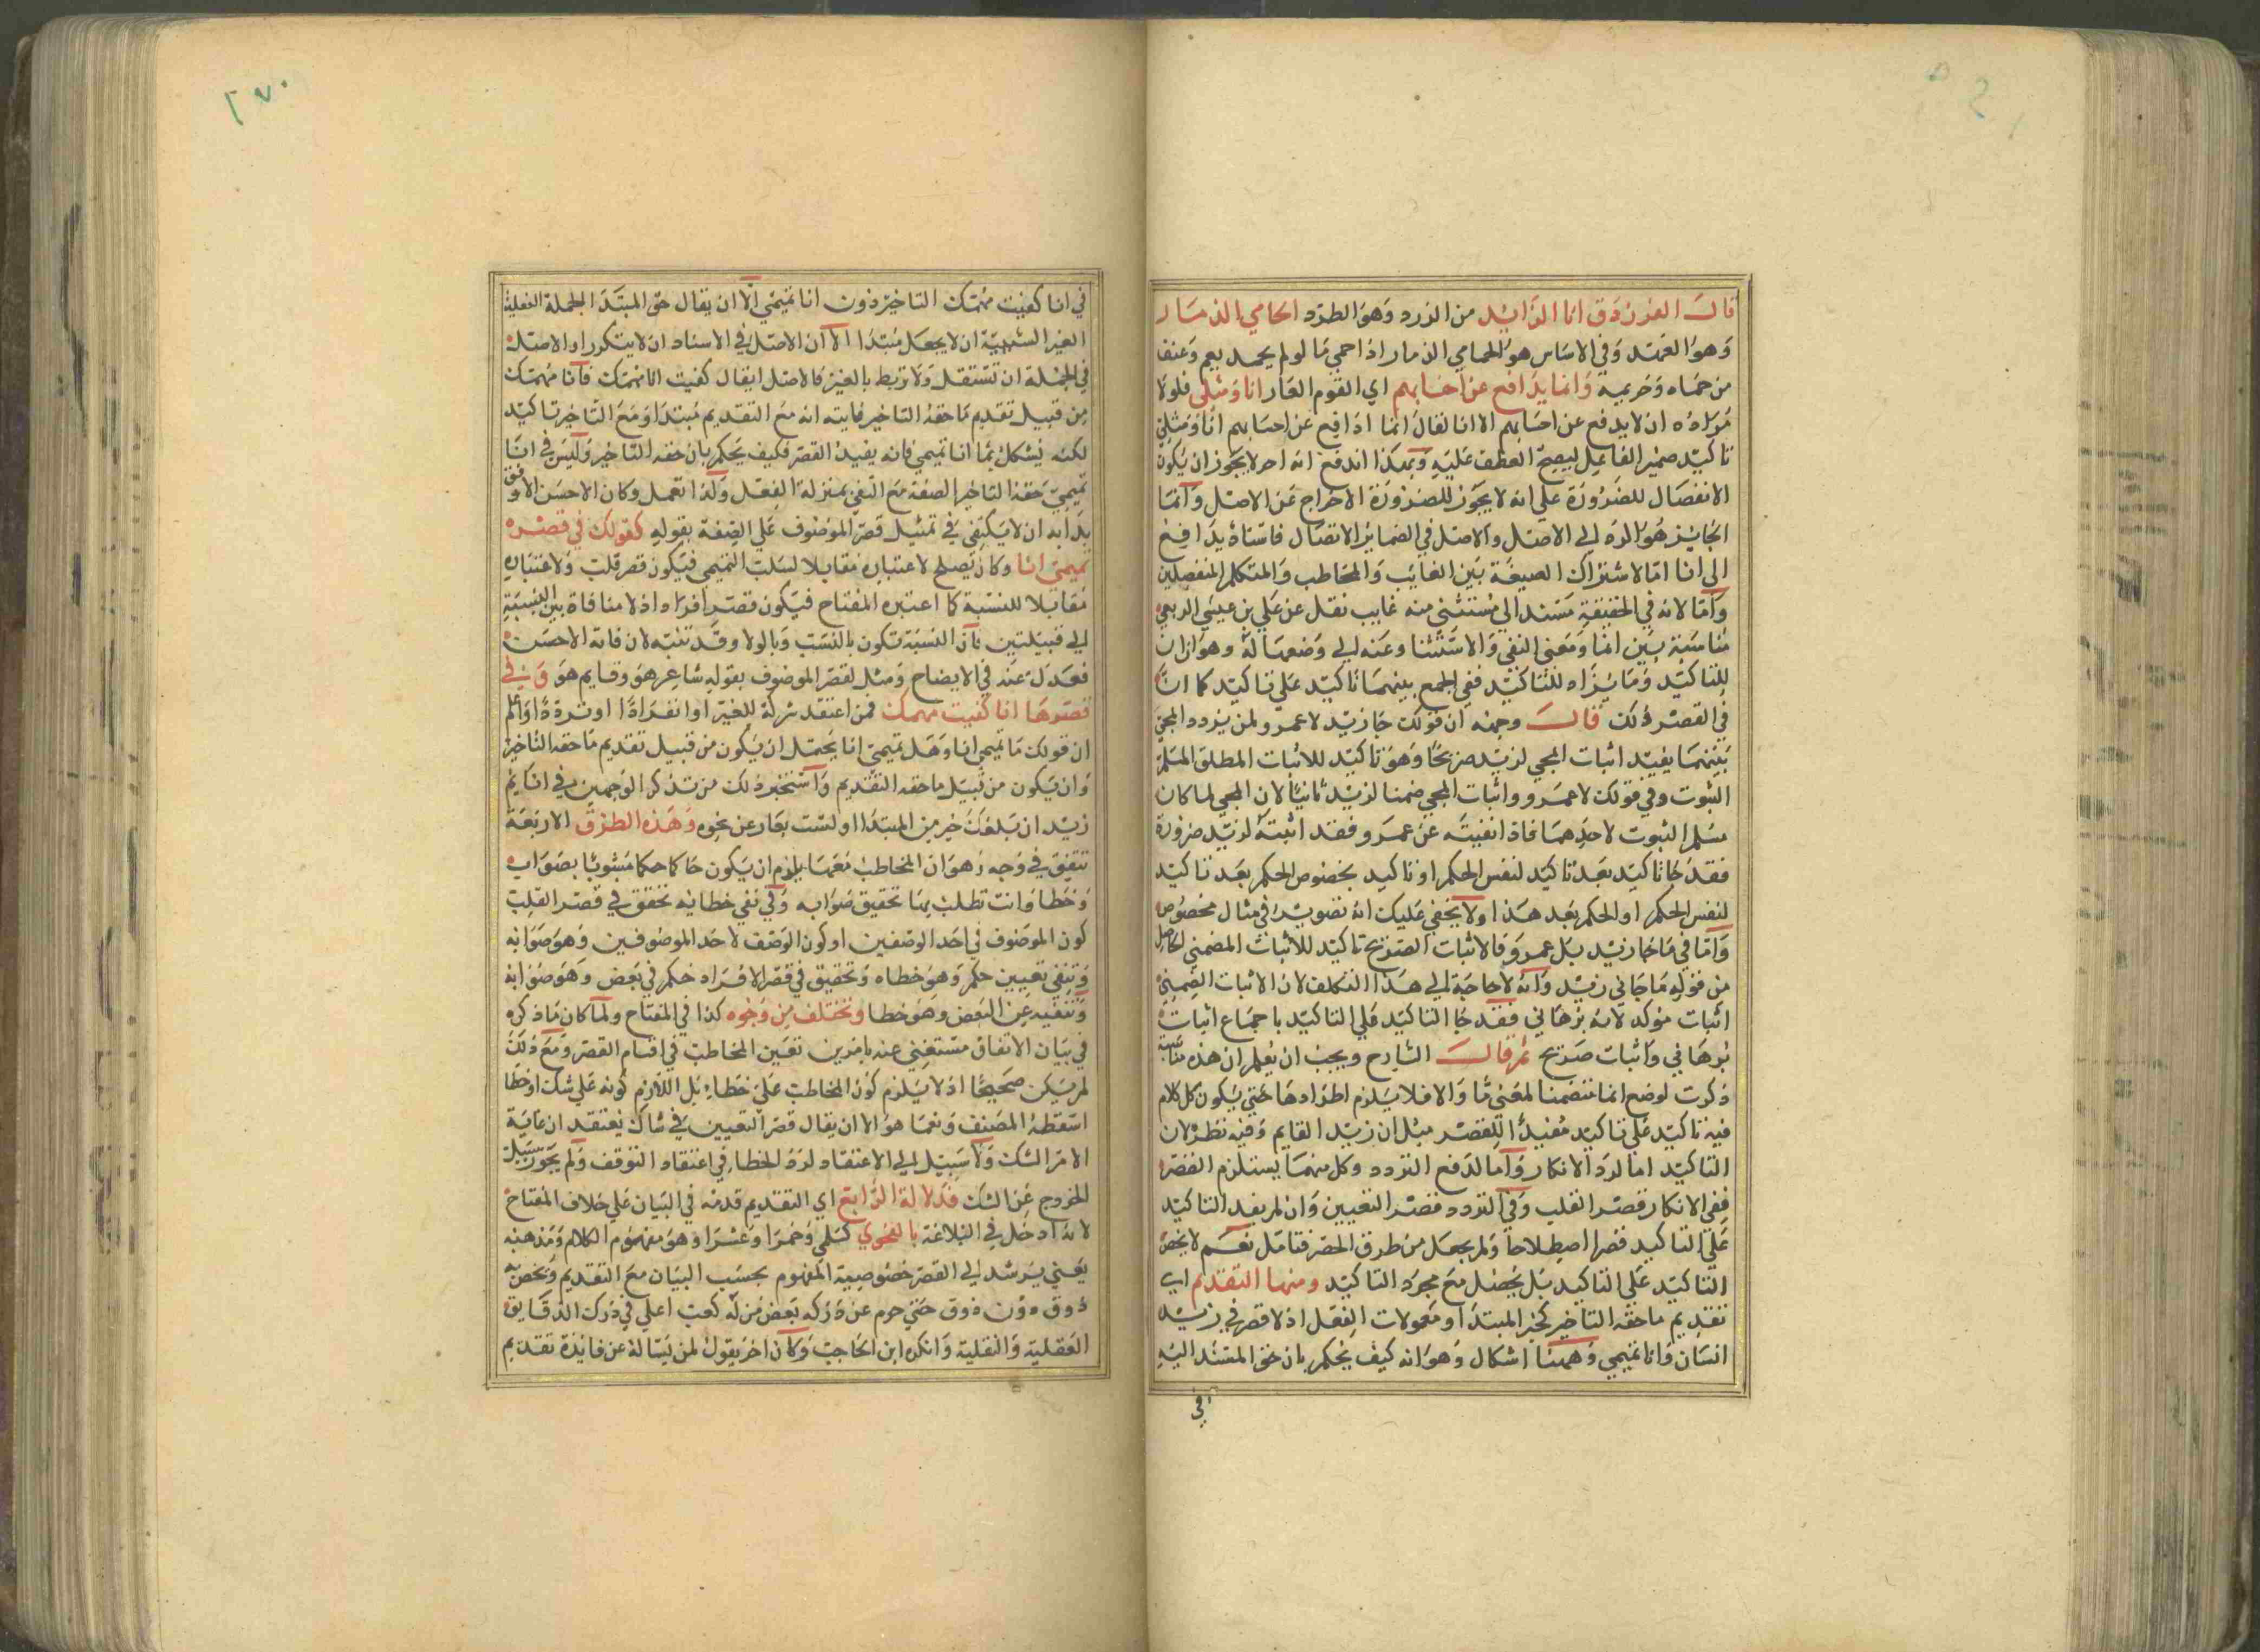 قال الفرزدق انا الذايد من الذرد وهو الطرد الحامي الذمار
وهو العهد وفي الاساس هو الحامي الذمار اذا حمي ما لو لم يحمه ليم وعنف
من حماه وحريمه وانما يدافع عن احسابهم اي القوم العار انا ومثلي فلولا
مراده ان لا يدفع عن احسابهم الا انا لقال انما ادافع عن احسابهم انا ومثلي
تاكيد ضمير الفاعل ليصح العطف عليه وبهكذا اندفع انه لا يجوز ان يكون
الانفصال للضرورة على انه لا يجوز للضرورة الاخراج عن الاصل وانما
الجايز هو الرد الى الاصل والاصل في الضماير الاتصال فاسناد يدافع
الى انا اما لاشتراك الصيغة بين الغايب والمخاطب والمتكلم المنفصلين
واما لانه في الحقيقة مسند الى مستثنى منه غايب نقل عن علي بن عيسى الربعي
مناسبة بين انما ومعنى النفي والاستثنا وعنه الى وضعها له وهو ان ان
للتاكيد وما يزاد للتاكيد ففي الجمع بينهما تاكيد على تاكيد كما ان
في القصر ذلك قال وجهه ان قولك جا زيد لا عمرو لمن يردد المجي
بينهما يفيد اثبات المجي لزيد صريحا وهو تاكيد للاثبات المطلق المسلم
الثبوت وفي قولك لا عمرو واثبات المجي ضمنا لزيد ثانيا لان المجي لما كان
مسلم الثبوت لاحدهما فاذا نفيته عن عمرو فقد اثبته لزيد ضرورة
فقد جا تاكيد بعد تاكيد لنفس الحكم او تاكيد بخصوص الحكم بعد تاكيد
لنفس الحكم او الحكم بعد هذا ولا يخفى عليك انه تصوير في مثال مخصوص
واما في ما جا زيد بل عمرو فالاثبات الصريح تاكيد للاثبات الضمني الحاصل
من قوله ما جاني زيد وانه لا حاجة الى هذا التكلف لان الاثبات الضمني
اثبات موكد لانه برهاني فقد جا التاكيد على التاكيد باجماع اثبات
برهاني واثبات صريح ثم قال الشارح ويجب ان يعلم ان هذه مناسبة
ذكرت لوضع انما متضمنا لمعنى ما والا فلا يلزم اطرادها حتى يكون كل كلام
فيه تاكيد على تاكيد مفيدا للقصر مثل ان زيد القايم وفيه نظر لان
التاكيد اما لرد الانكار واما لدفع التردد وكل منهما يستلزم القصر
ففي الانكار قصر القلب وفي التردد قصر التعيين وان لم يفد التاكيد
على التاكيد قصرا اصطلاحا ولم يجعل من طرق الحصر فتامل نعم لا يخص
التاكيد على التاكيد بل يحصل مع مجرد التاكيد ومنها التقديم اي
تقديم ما حقه التاخير كخبر المبتدا ومعمولات الفعل اذ لا قصر في زيد
انسان وانا تميمي وههنا اشكال وهو انه كيف يحكم بان حق المسند اليه
في
٢٧٠
في انا كفيت مهمك التاخير دون انا تميمي الا ان يقال حق المبتدا الجملة الفعلية
الغير السببية ان لا يجعل مبتدا الا ان الاصل في الاسناد ان لا يتكرر او الاصل
في الجملة ان تستقل ولا تربط بالغير فالاصل ان يقال كفيت انا مهمك فانا مهمك
من قبيل تقديم ما حقه التاخير غايته انه مع التقديم مبتدا ومع التاخير تاكيد
لكنه يشكل بما انا تميمي فانه يفيد القصر فكيف يحكم بان حقه التاخير وليس في انا
تميمي حقه التاخير الصفة مع النفي بمنزلة الفعل ولذا تعمل وكان الاحسن الاوفق
بدابه ان لا يكتفي في تمثيل قصر الموصوف على الصفة بقوله كقولك في قصره
تميمي انا وكان يصلح لاعتباره مقابلا لسلب التميمي فيكون قصر قلب ولاعتباره
مقابلا للنسبة كما اعتبره المفتاح فيكون قصر افراد اذ لا منافاة بين النسبة
الى قبيلتين بان النسبة تكون بالنسب وبالولا وقد تنبه لان فاته الاحسن
فعدل عنه في الايضاح ومثل لقصر الموصوف بقوله شاعر هو وقايم هو وفي
قصرها انا كفيت مهمك فمن اعتقد شركة للغير او انفرادا او ترددا واعلم
ان قولك ما تميمي انا وهل تميمي انا يحتمل ان يكون من قبيل تقديم ما حقه التاخير
وان يكون من قبيل ما حقه التقديم واستخبر ذلك من تذكر الوجهين في انا
زيد ان بلغك خبر من المبتدا اولست بعار عن نحوه وهذه الطرق الاربعة
تتفق في وجه وهو ان المخاطب معها يلزم ان يكون حاكما حكما مشوبا بصواب
وخطا وانت تطلب بها تحقيق صوابه وفي نفي خطائه تحقق في قصر القلب
كون الموصوف في احد الوصفين او كون الوصف لاحد الموصوفين وهو صوابه
وتنفي تعيين حكم وهو خطاه وتحقيق في قصر الافراد حكم في بعض وهو صوابه
وتنفيه عن البعض وهو خطا وتختلف من وجوه كذا في المفتاح ولما كان ما ذكره
في بيان الاتفاق مستغني عنه بامرين تعيين المخاطب في اقسام القصر ومع ذلك
لم يكن صحيحا اذ لا يلزم كون المخاطب على خطا بل اللازم كونه على شك او خطا
اسقطه المصنف ونعما هو الا ان يقال قصر التعيين في شاك يعتقد ان غاية
الامر الشك ولا سبيل الى الاعتقاد لرد الخطا في اعتقاد التوقف ولم يجوز سبيل
الخروج عن الشك فدلالة الرابع اي التقديم قدمه في البيان على خلاف المفتاح
لانه ادخل في البلاغة بالفحوى كسلمى وحمرا وعشرا وهو مفهوم الكلام ومذهبه
يعني يرشد الى القصر خصوصية المفهوم بحسب البيان مع التقديم ويخصه
ذوق دون ذوق حتى حرم عن دركه بعض من له كعب اعلى في درك الدقايق
العقلية والنقلية وانكره ابن الحاجب وكان اخر يقول لمن يساله عن فايدة تقديم